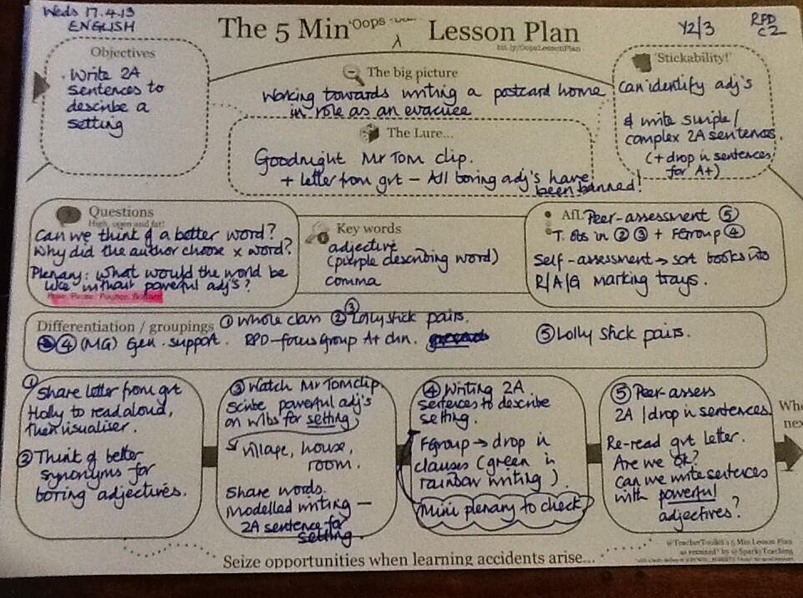 Weds 17.4.13
ENGLISH
The 5 Min Lesson Plan
'Oops
Y2/3
RPD
C2
bit.ly/OopsLessonPlan
Objectives
· Write 2A
sentences to
describe a
setting
The big picture
Working towards writing a postcard home
in role as an evacuee
The Lure...
Goodnight Mr Tom clip.
+ letter from gvt – All boring adj's have
been banned!
'Stickability!'
Can identify adj's
& write simple/
complex 2A sentences.
(+ drop in sentences
for A+)
Questions
High, open and fat!
Can we think of a better word?
Why did the author choose x word?
Plenary: What would the world be
like without powerful adj's?
Pose, Pause, Pounce, Bounce
Key words
adjective
(purple describing word)
comma
AfL
Peer-assessment ⑤
T. Obs in ② ③ + FGroup ④
Self-assessment → sort books into
R/A/G marking trays.
Differentiation / groupings
① Whole class ② ③ Lolly stick pairs.
④ (MG) Gen. support. RPD-focus group A+ chn.
⑤ Lolly stick pairs.
① Share letter from gvt
Holly to read aloud,
then visualiser.
② Think of better
synonyms for
boring adjectives.
③ Watch Mr Tom clip.
Scribe powerful adj's
on w/bs for setting
village, house,
room.
Share words.
Modelled writing –
2A sentence for
setting.
④ Writing 2A
sentences to describe
setting.
FGroup → drop in
clauses (green in
rainbow writing).
Mini plenary to check
⑤ Peer-assess
2A / drop in sentences.
Re-read gvt letter.
Are we OK?
Can we write sentences
with powerful
adjectives?
Seize opportunities when learning accidents arise...
@TeacherToolkit's 5 Min Lesson Plan
as remixed by @SparkyTeaching